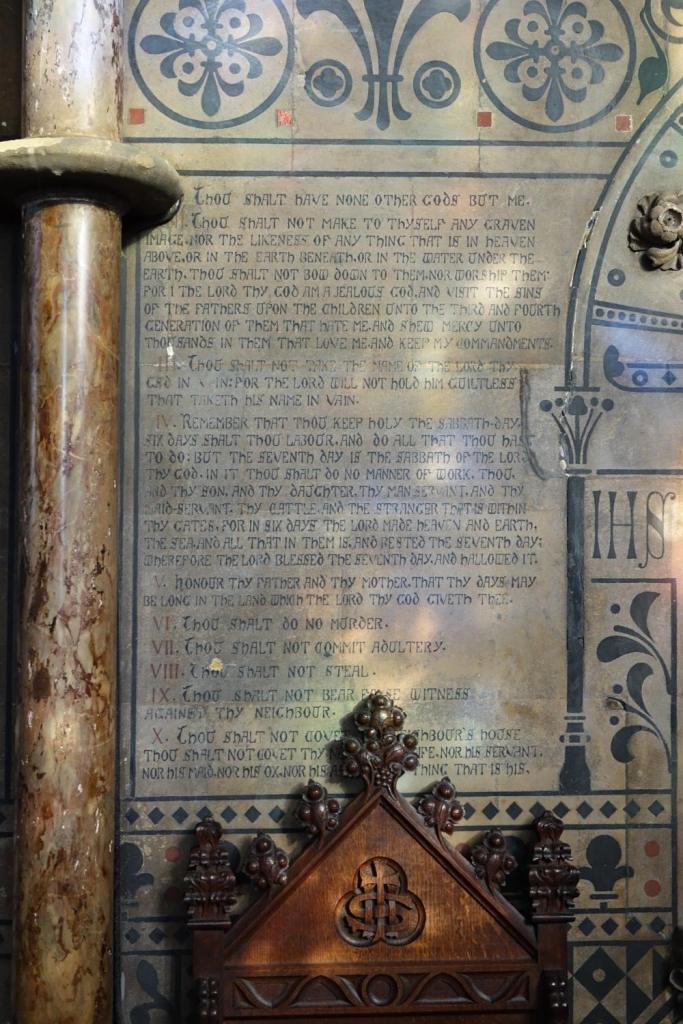 Thou shalt have none other gods but me.
Thou shalt not make to thyself any graven
image, nor the likeness of any thing that is in heaven
above, or in the earth beneath, or in the water under the
earth. Thou shalt not bow down to them, nor worship them:
for I the Lord thy God am a jealous God, and visit the sins
of the fathers upon the children unto the third and fourth
generation of them that hate me, and shew mercy unto
thousands in them that love me, and keep my commandments.
III. Thou shalt not take the name of the Lord thy
God in vain: for the Lord will not hold him guiltless
that taketh his name in vain.
IV. Remember that thou keep holy the Sabbath-day.
Six days shalt thou labour, and do all that thou hast
to do: but the seventh day is the Sabbath of the Lord
thy God. In it thou shalt do no manner of work, thou,
and thy son, and thy daughter, thy man servant, and thy
maid-servant, thy cattle, and the stranger that is within
thy gates. For in six days the Lord made heaven and earth,
the sea, and all that in them is, and rested the seventh day:
wherefore the Lord blessed the seventh day, and hallowed it.
V. Honour thy father and thy mother, that thy days may
be long in the land which the Lord thy God giveth thee.
VI. Thou shalt do no murder.
VII. Thou shalt not commit adultery.
VIII. Thou shalt not steal.
IX. Thou shalt not bear false witness
against thy neighbour.
X. Thou shalt not covet neighbour's house
Thou shalt not covet thy wife, nor his servant,
nor his maid, nor his ox, nor his thing that is his.
IHS